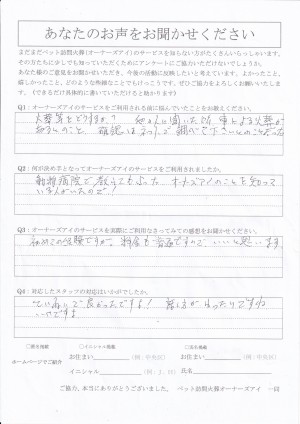 あなたのお声をお聞かせください
まだまだペット訪問火葬(オーナーズアイ)のサービスを知らない方がたくさんいらっしゃいます。
その方たちに少しでも知っていただくためにアンケートにご協力いただけないでしょうか。
あなた様のご意見をお聞かせいただき、今後の活動に反映したいと考えています。よかったこと、
嬉しかったこと、どのような些細なことでもけっこうです。ぜひご協力をよろしくお願いいたします。
(できるだけ具体的に書いていただけると助かります)
Q1:オーナーズアイのサービスをご利用される前に悩んでいたことをお教えください。
火葬等をどうするか?
Q2:何が決め手となってオーナーズアイのサービスをご利用されましたか。
動物病院で教えてもらった。オーナーズアイのことを知って
いる人がいたので!
Q3:オーナーズアイのサービスを実際にご利用なさってみての感想をお聞かせください。
初めての経験ですが、料金も普通ですので、いいと思います
Q4:対応したスタッフの対応はいかがでしたか。
ていねいで良かったですよ!
□匿名掲載 □イニシャル掲載 □実名掲載
ホームページでご紹介
お住まい (例:中央区) お住まい (例:中央区)
イニシャル (例:J.H) 氏名
ご協力、本当にありがとうございました。 ペット訪問火葬オーナーズアイ 一同